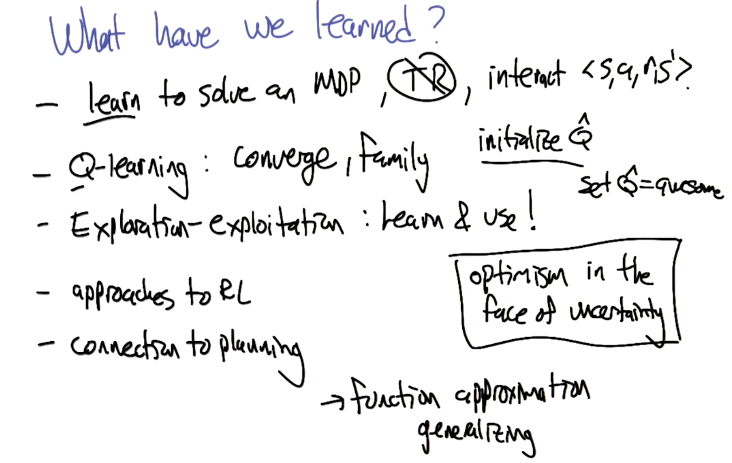 What have we learned?
- learn to solve an MDP, TR, interact <s,a,r,s'>
- Q-learning: converge, family
initialize Q̂
set Q̂=awesome
- Exploration-exploitation: learn & use!
- approaches to RL
optimism in the
face of uncertainty
- connection to planning
→ function approximation
generalizing